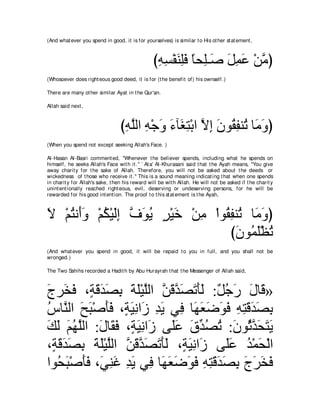 (And whatever you spend in good, it is for yourselves) is similar to His other statement,
(مَّنْ عَمِلَ صَـلِحاً فَلِنَفْسِهِ)
(Whosoever does righteous good deed, it is for (the benefit of) his ownself.)
There are many other similar Ayat in the Qur'an.
Allah said next,
(وَمَا تُنفِقُونَ إِلاَّ ابْتِغَآءَ وَجْهِ اللَّهِ)
(When you spend not except seeking Allah's Face.)
Al-Hasan Al-Basri commented, "Whenever the believer spends, including what he spends on
himself, he seeks Allah's Face with it." `Ata' Al-Khurasani said that the Ayah means, "You give
away charity for the sake of Allah. Therefore, you will not be asked about the deeds or
wickedness of those who receive it.'' This is a sound meaning indicating that when one spends
in charity for Allah's sake, then his reward will be with Allah. He will not be asked if the charity
unintentionally reached righteous, evil, deserving or undeserving persons, for he will be
rewarded for his good intention. The proof to this statement is the Ayah,
(وَمَا تُنفِقُواْ مِنْ خَيْرٍ يُوَفَّ إِلَيْكُمْ وَأَنتُمْ لاَ
تُظْلَمُونَ)
(And whatever you spend in good, it will be repaid to you in full, and you shall not be
wronged.)
The Two Sahihs recorded a Hadith by Abu Hurayrah that the Messenger of Allah said,
«قَالَ رَجُلٌ: لَأَتَصَدَّقَنَّ اللَّيْلَةَ بِصَدَقَةٍ، فَخَرَجَ
بِصَدَقَتِهِ فَوَضَعَهَا فِي يَدِ زَانِيَةٍ، فَأَصْبَحَ النَّاسُ
يَتَحَدَّثُونَ: تُصُدِّقَ عَلَى زَانِيَةٍ، فَقَالَ: اللَّهُمَّ لَكَ
الْحَمْدُ عَلَى زَانِيَةٍ، لَأَتَصَدَّقَنَّ اللَّيْلَةَ بِصَدَقَةٍ،
فَخَرَجَ بِصَدَقَتِهِ فَوَضَعَهَا فِي يَدِ غَنِيَ، فَأَصْبَحُوا